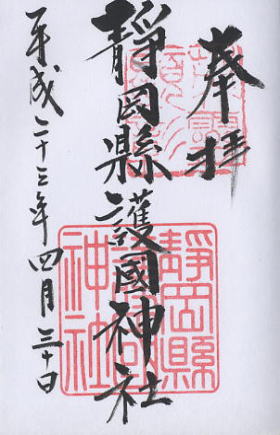 奉拝
靜岡縣護國神社
平成二十三年四月三十日
靜岡縣
護國
神社